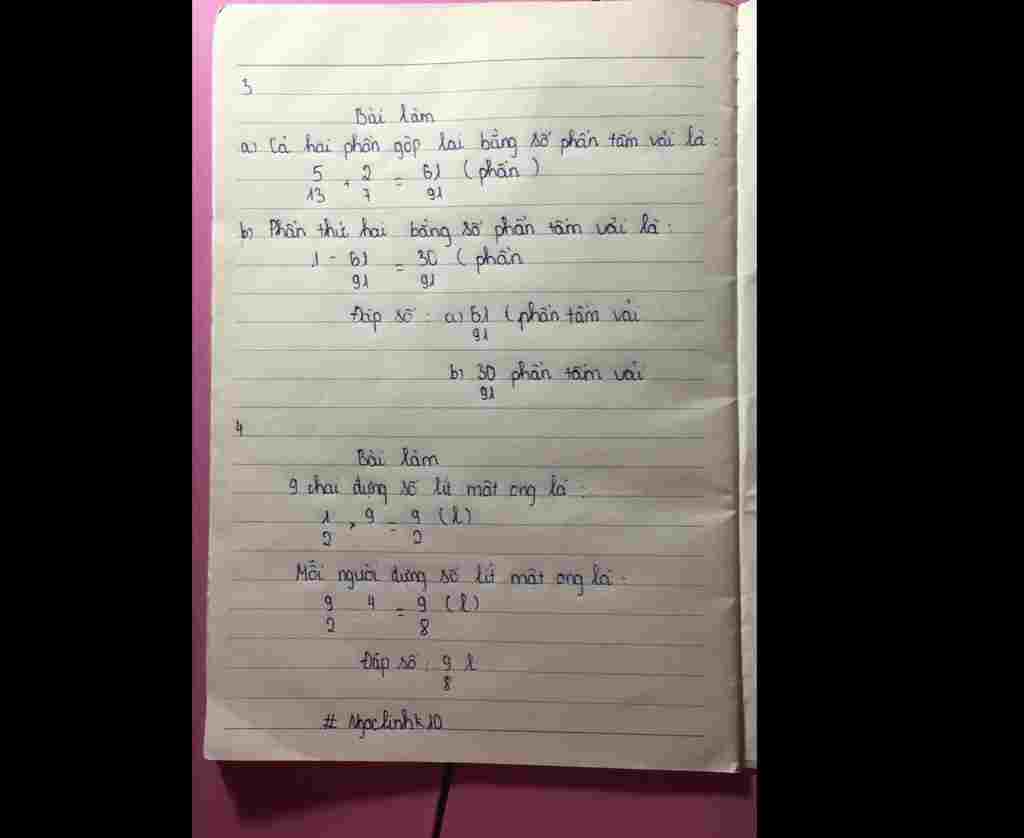 3
Bài làm
a) Cả hai phần gộp lại bằng số phần tấm vải là:
5/13 + 2/7 = 61/91 (phần)
b) Phần thứ hai bằng số phần tấm vải là:
1 - 61/91 = 30/91 (phần
Đáp số: a) 61/91 (phần tấm vải
b) 30/91 phần tấm vải
4
Bài làm
9 chai đựng số lít mật ong là:
1/2 × 9 = 9/2 (l)
Mỗi người đựng số lít mật ong là:
9/2 4 = 9/8 (l)
Đáp số: 9/8 l
# Ngoclinhk10